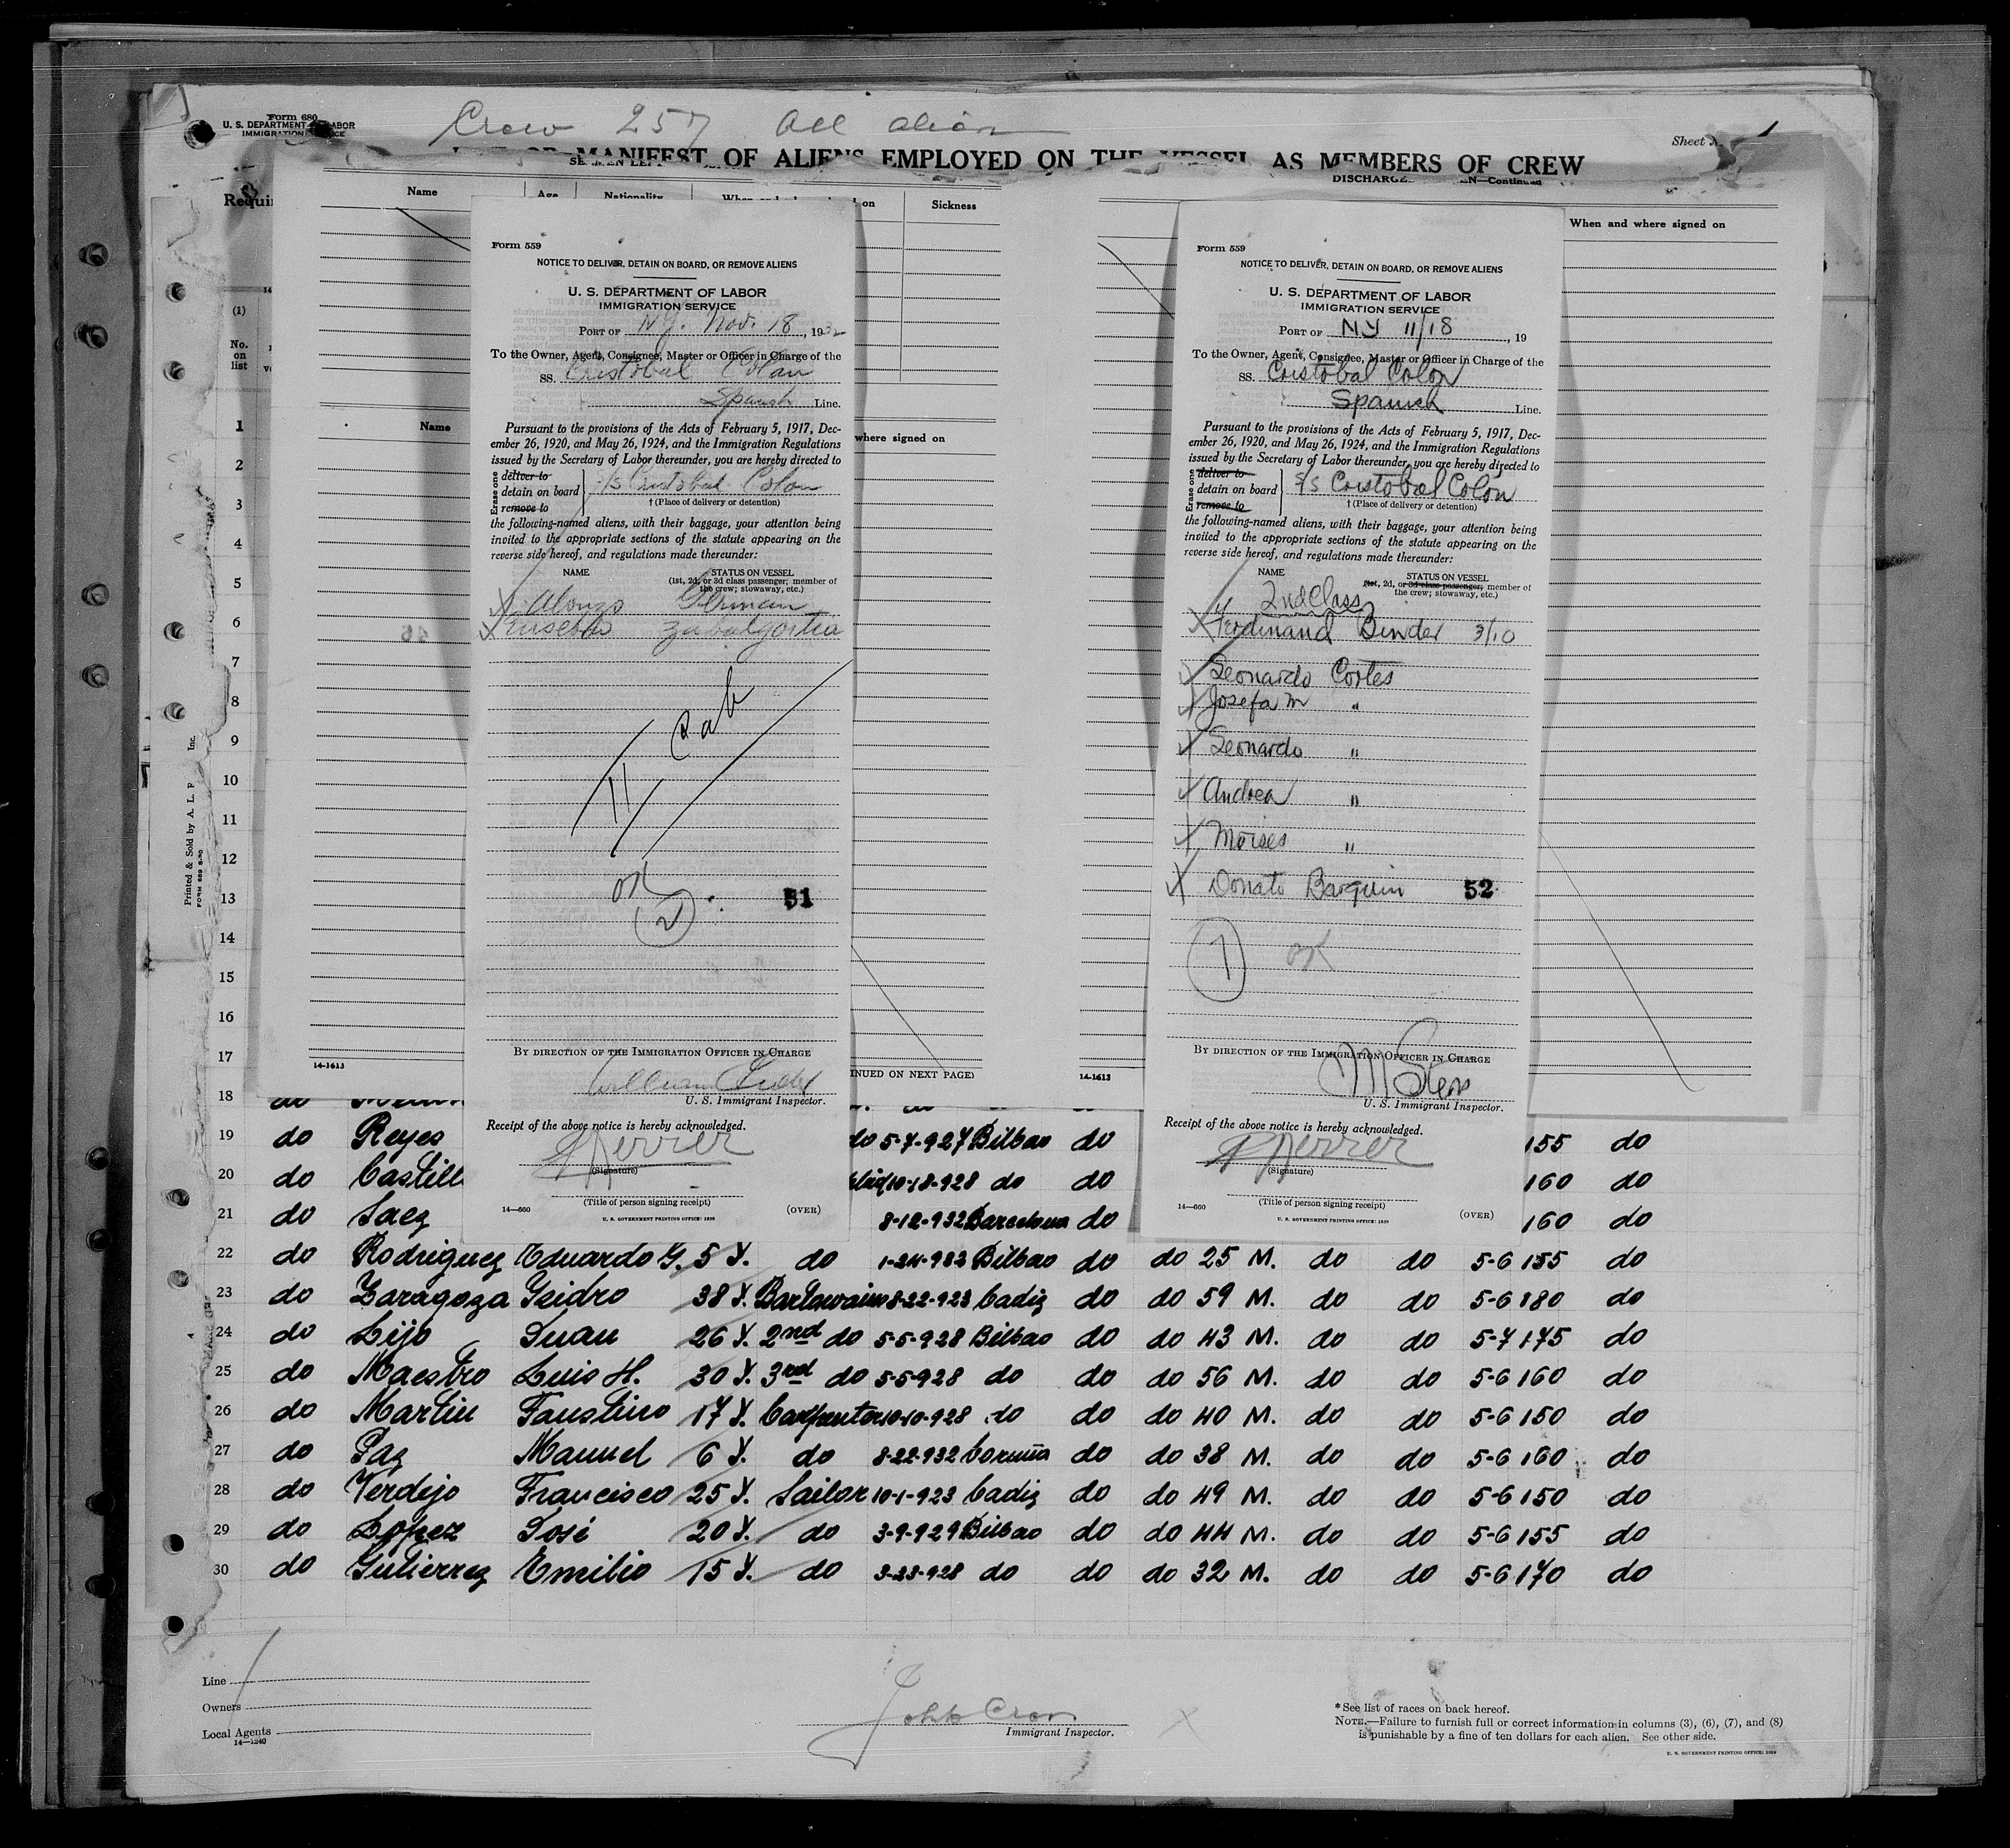 Form 680
U. S. DEPARTMENT OF LABOR
IMMIGRATION SERVICE
Crew 257 all alien
MANIFEST OF ALIENS EMPLOYED ON THE VESSEL AS MEMBERS OF CREW
Sheet
Name
Age
Nationality
on
Sickness
DISCHARGE
N—Continued
When and where signed on
(1)
No.
on
list
Name
where signed on
Printed & Sold by A. L. F
Inc.
1
2
3
4
5
6
7
8
9
10
11
12
13
14
15
16
17
14-1613
INUED ON NEXT PAGE)
14-1613
Form 559
NOTICE TO DELIVER, DETAIN ON BOARD, OR REMOVE ALIENS
U. S. DEPARTMENT OF LABOR
IMMIGRATION SERVICE
PORT OF N.Y. Nov. 18, 1932
To the Owner, Agent, Consignee, Master or Officer in Charge of the
SS. Cristobal Colon
Spanish Line.
Pursuant to the provisions of the Acts of February 5, 1917, Dec-
ember 26, 1920, and May 26, 1924, and the Immigration Regulations
issued by the Secretary of Labor thereunder, you are hereby directed to
Erase one
deliver to
detain on board S/S Cristobal Colon
remove to
† (Place of delivery or detention)
the following-named aliens, with their baggage, your attention being
invited to the appropriate sections of the statute appearing on the
reverse side hereof, and regulations made thereunder:
NAME
STATUS ON VESSEL
(1st, 2d, or 3d class passenger; member of
the crew; stowaway, etc.)
Alonzo German
Eusebio Zabalgoitia
11 Cab
OK
(2)
51
BY DIRECTION OF THE IMMIGRATION OFFICER IN CHARGE
William
U. S. Immigrant Inspector.
Receipt of the above notice is hereby acknowledged.
Ferrer
(Signature)
(Title of person signing receipt)
14—660
U. S. GOVERNMENT PRINTING OFFICE: 1930
(OVER)
Form 559
NOTICE TO DELIVER, DETAIN ON BOARD, OR REMOVE ALIENS
U. S. DEPARTMENT OF LABOR
IMMIGRATION SERVICE
PORT OF NY 11/18, 19
To the Owner, Agent, Consignee, Master or Officer in Charge of the
SS. Cristobal Colon
Spanish Line.
Pursuant to the provisions of the Acts of February 5, 1917, Dec-
ember 26, 1920, and May 26, 1924, and the Immigration Regulations
issued by the Secretary of Labor thereunder, you are hereby directed to
Erase one
deliver to
detain on board S/S Cristobal Colon
remove to
† (Place of delivery or detention)
the following-named aliens, with their baggage, your attention being
invited to the appropriate sections of the statute appearing on the
reverse side hereof, and regulations made thereunder:
NAME
STATUS ON VESSEL
(1st, 2d, or 3d class passenger; member of
the crew; stowaway, etc.)
2nd Class
Ferdinand Binder 3/10
Leonardo Cortes
Josefa M "
Leonardo "
Andrea "
Moises "
Donato Barquin 52
(7) OK
BY DIRECTION OF THE IMMIGRATION OFFICER IN CHARGE
U. S. Immigrant Inspector.
Receipt of the above notice is hereby acknowledged.
Ferrer
(Signature)
(Title of person signing receipt)
14—660
U. S. GOVERNMENT PRINTING OFFICE: 1930
(OVER)
18 do
19 do Reyes do 5-7-927 Bilbao do 155 do
20 do Castill 10-18-928 do do 160 do
21 do Saez 8-12-932 Barcelona do 160 do
22 do Rodriguez Eduardo G. 5 Y. do 1-24-932 Bilbao do do 25 M. do do 5-6 155 do
23 do Zaragoza Isidro 38 Y. 8-22-923 Cadiz do do 59 M. do do 5-6 180 do
24 do Lijo Juan 26 Y. 2nd do 5-5-928 Bilbao do do 43 M. do do 5-7 175 do
25 do Maestro Luis H. 30 Y. 3rd do 5-5-928 do do do 56 M. do do 5-6 160 do
26 do Martin Faustino 17 Y. Carpenter 10-10-928 do do do 40 M. do do 5-6 150 do
27 do Paz Manuel 6 Y. do 8-22-932 Coruña do do 38 M. do do 5-6 160 do
28 do Verdejo Francisco 25 Y. Sailor 10-1-923 Cadiz do do 49 M. do do 5-6 150 do
29 do Lopez José 20 Y. do 3-9-929 Bilbao do do 44 M. do do 5-6 155 do
30 do Gutierrez Emilio 15 Y. do 3-23-928 do do do 32 M. do do 5-6 170 do
Line
Owners
Local Agents
14—1240
John
Immigrant Inspector.
* See list of races on back hereof.
NOTE.—Failure to furnish full or correct information in columns (3), (6), (7), and (8)
is punishable by a fine of ten dollars for each alien. See other side.
U. S. GOVERNMENT PRINTING OFFICE: 1929